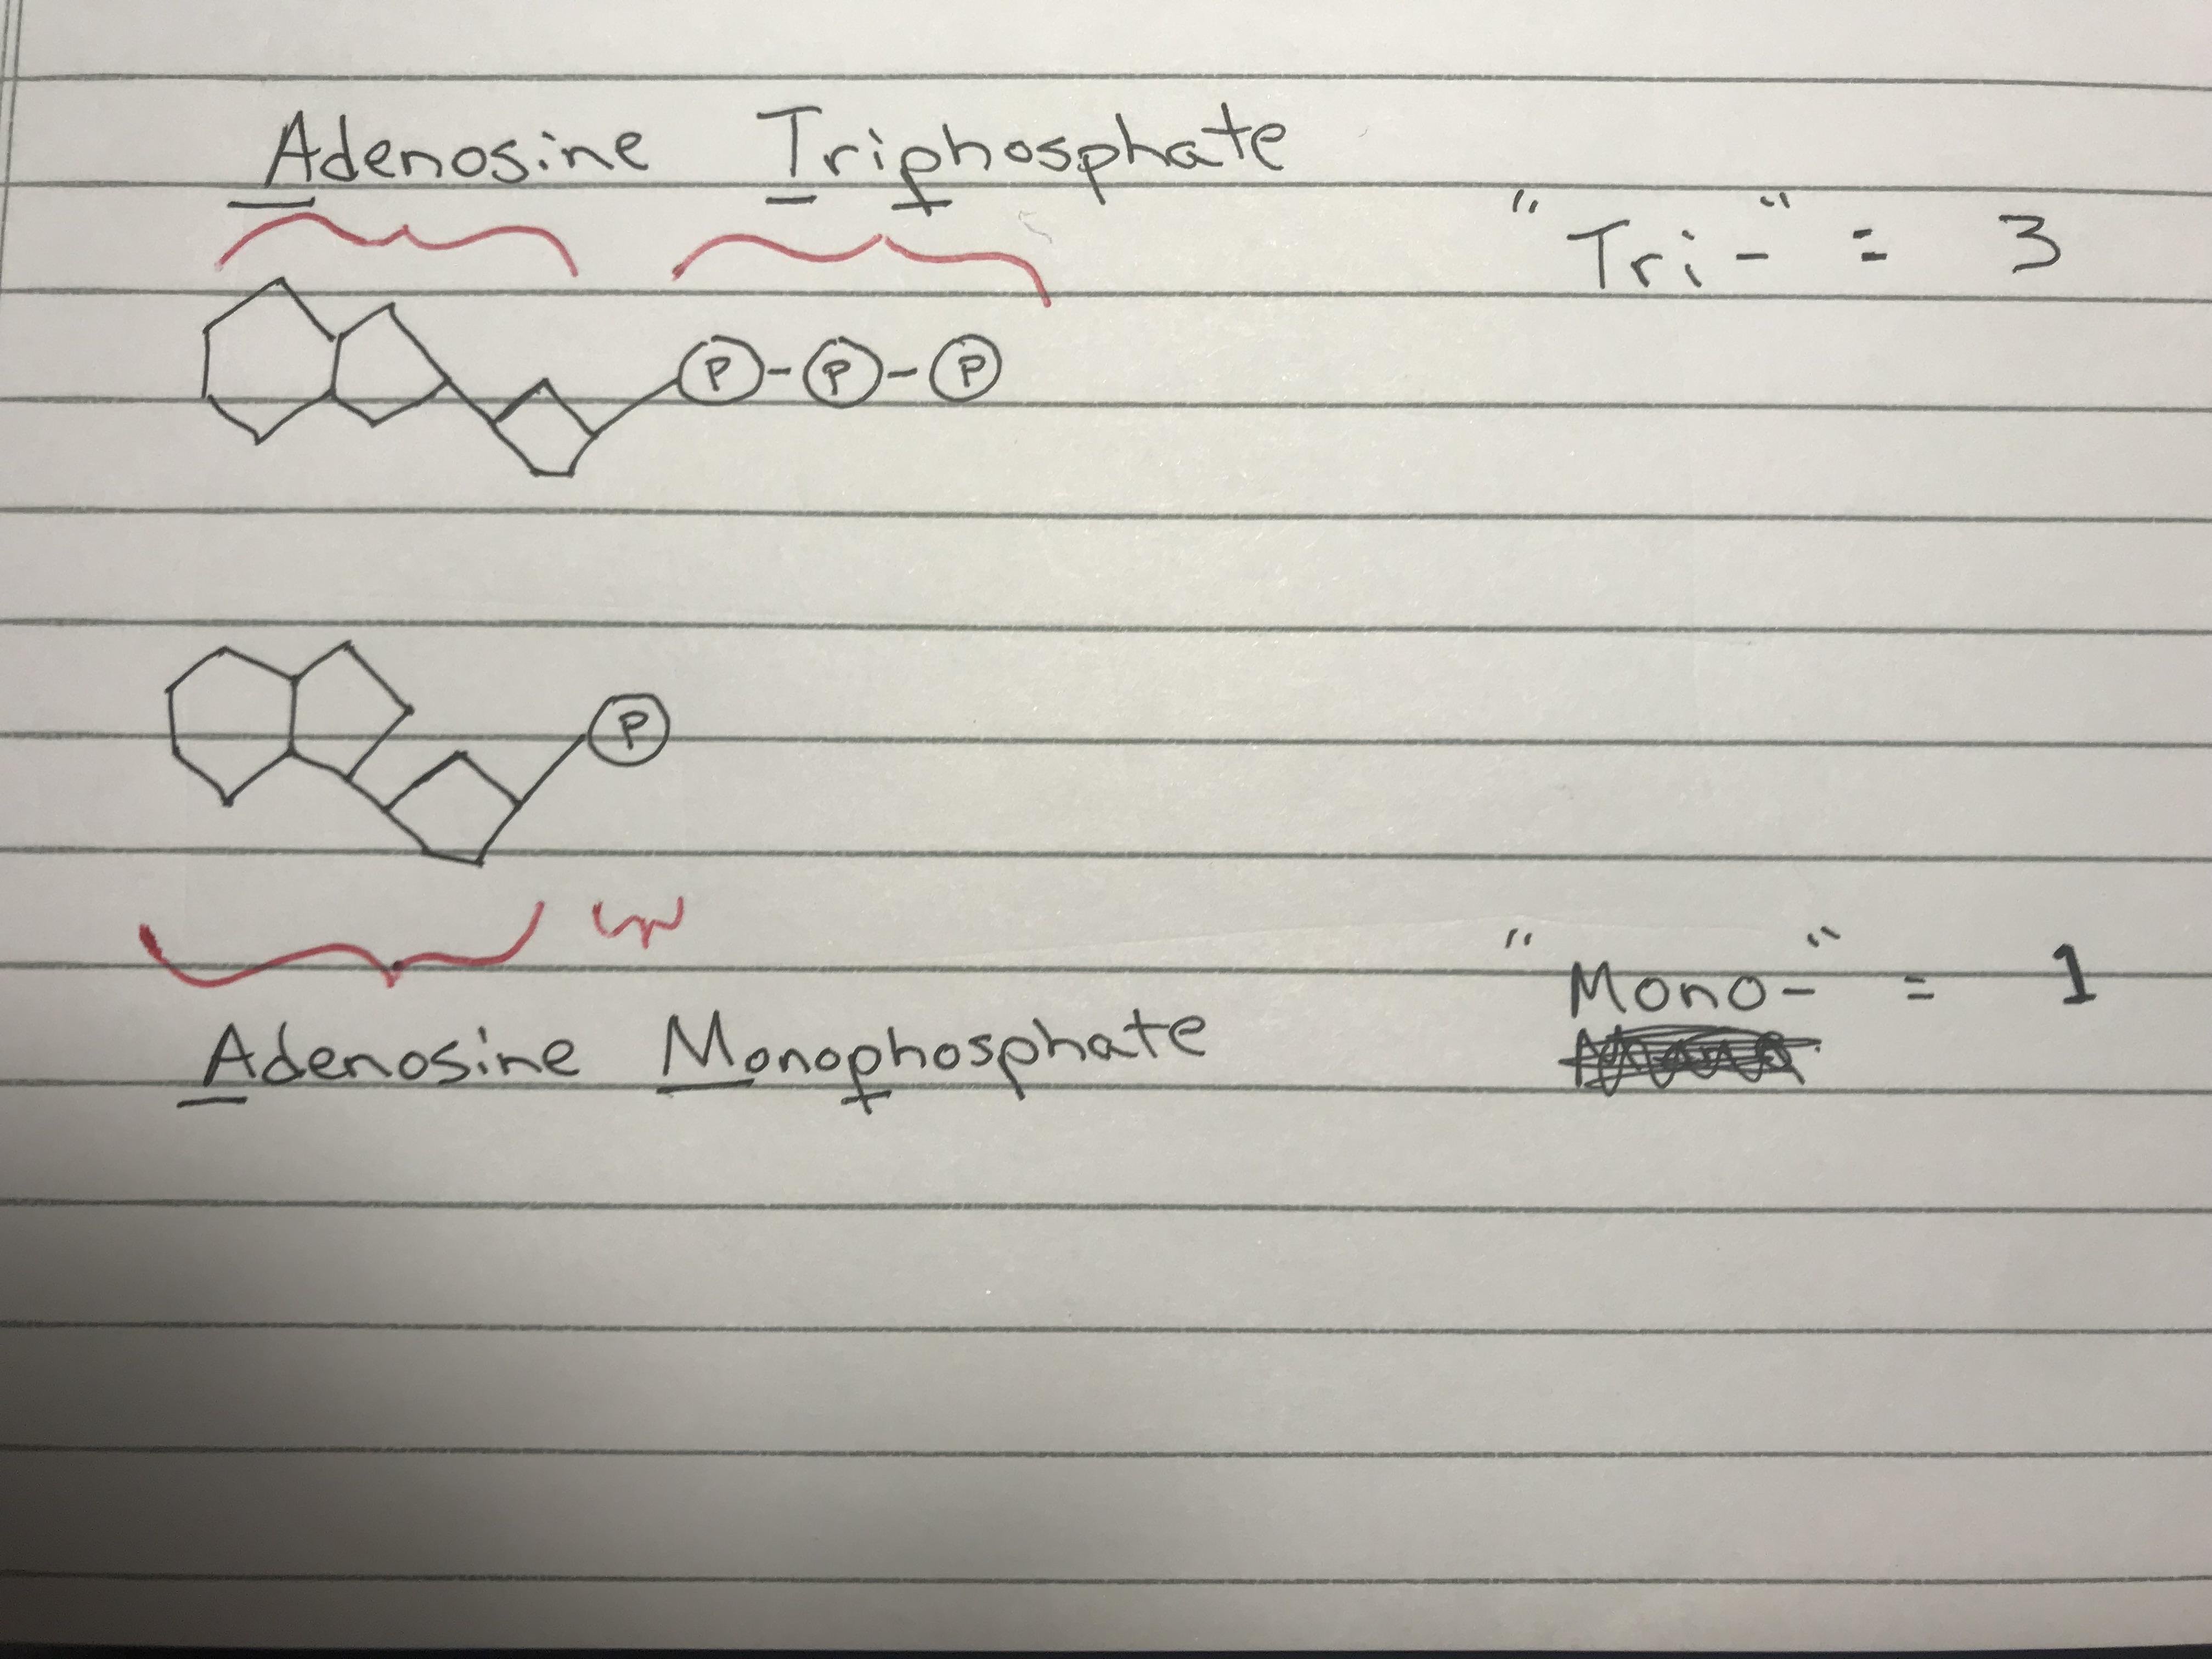 Adenosine Triphosphate
"Tri-" = 3
P-P-P
P
"Mono-" = 1
Adenosine Monophosphate